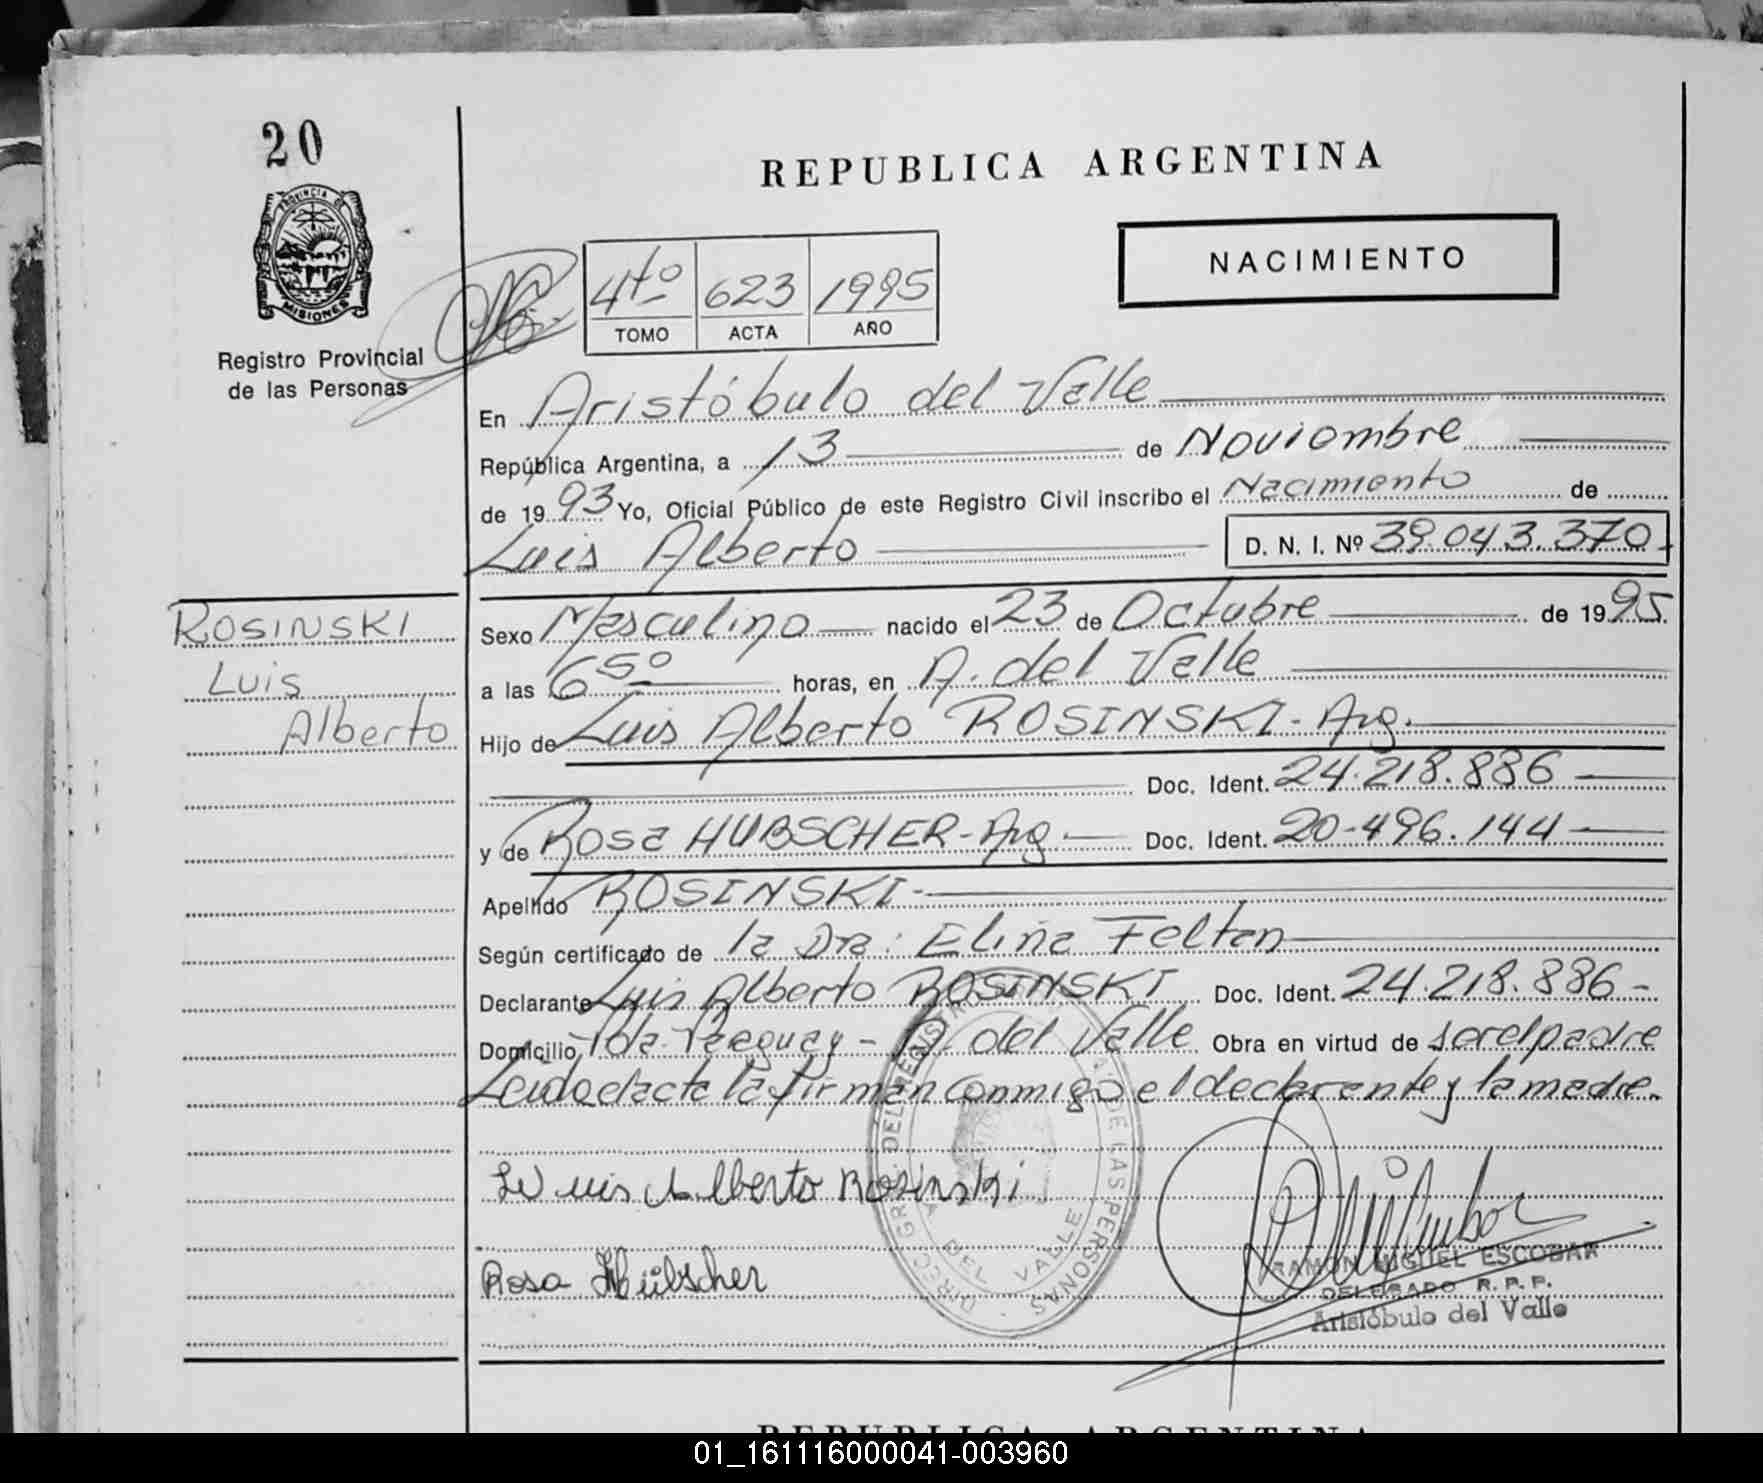 20
REPUBLICA ARGENTINA
PROVINCIA DE
MISIONES
NACIMIENTO
4to 623 1995
TOMO ACTA AÑO
Registro Provincial
de las Personas
En Aristóbulo del Valle
República Argentina, a 13 de Noviembre
de 1993 Yo, Oficial Público de este Registro Civil inscribo el Nacimiento de
Luis Alberto D. N. I. Nº 39.043.370
ROSINSKI
Luis
Alberto
Sexo Masculino nacido el 23 de Octubre de 1995.
a las 6 50 horas, en A. del Valle
Hijo de Luis Alberto ROSINSKI - Arg.
Doc. Ident. 24.218.886
y de Rosa HUBSCHER - Arg. Doc. Ident. 20-496.144
Apellido ROSINSKI -
Según certificado de la Dra: Eliña Feltan
Declarante Luis Alberto ROSINSKI Doc. Ident. 24.218.886 -
Domicilio Pda. Paraguay - A. del Valle Obra en virtud de ser el padre
Leida el acta la firman conmigo el declarante y la madre.
Luis Alberto Rosinski
Rosa Hübscher
DIREC. GR. DEL REGISTRO DE LAS PERSONAS
A DEL VALLE
RAMON MIGUEL ESCOBAR
DELEGADO R. P. P.
Aristóbulo del Valle
REPUBLICA ARGENTINA
01_161116000041-003960